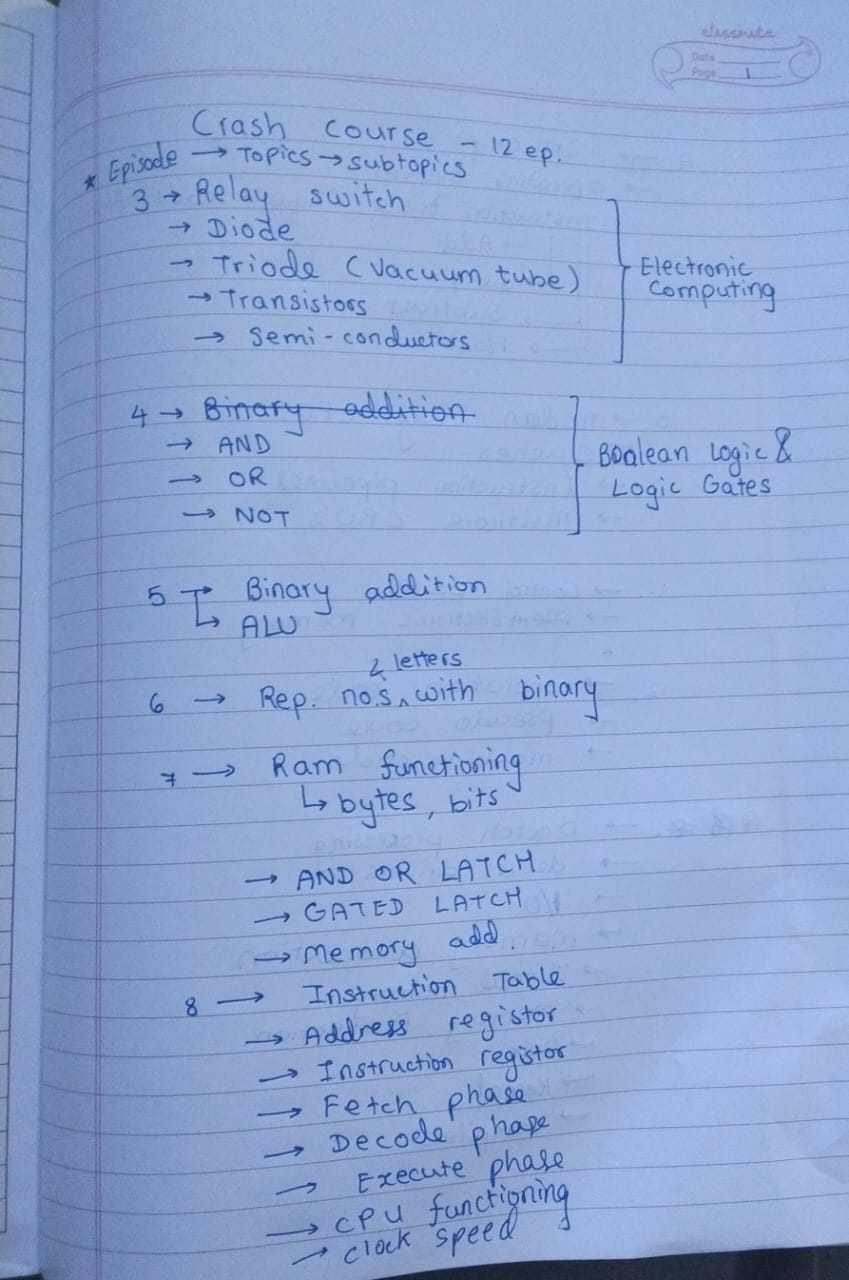 classmate
Date
Page 1
Crash course - 12 ep.
* Episode → Topics → subtopics
3 → Relay switch
→ Diode
→ Triode (vacuum tube)
→ Transistors
→ Semi-conductors
Electronic
Computing
4 → Binary addition
→ AND
→ OR
→ NOT
Boolean Logic &
Logic Gates
5 → Binary addition
↳ ALU
& letters
6 → Rep. no.s ^ with binary
7 → Ram functioning
↳ bytes, bits
→ AND OR LATCH
→ GATED LATCH
→ Memory add.
8 → Instruction Table
→ Address registor
→ Instruction registor
→ Fetch phase
→ Decode phase
→ Execute phase
→ CPU functioning
→ clock speed